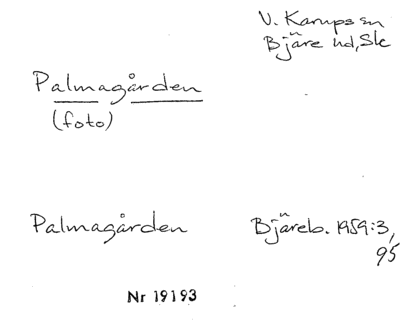 V. Karups sn
Bjäre hd, Sk
Palmagården
(foto)
Palmagården
Bjäreb. 1959:3,
95
Nr 19193